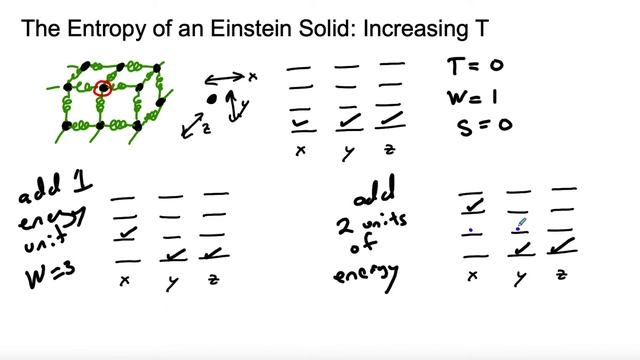 The Entropy of an Einstein Solid: Increasing T
x
y
z
x y z
T = 0
W = 1
S = 0
add 1
energy
unit
W = 3
x y z
add
2 units
of
energy
x y z